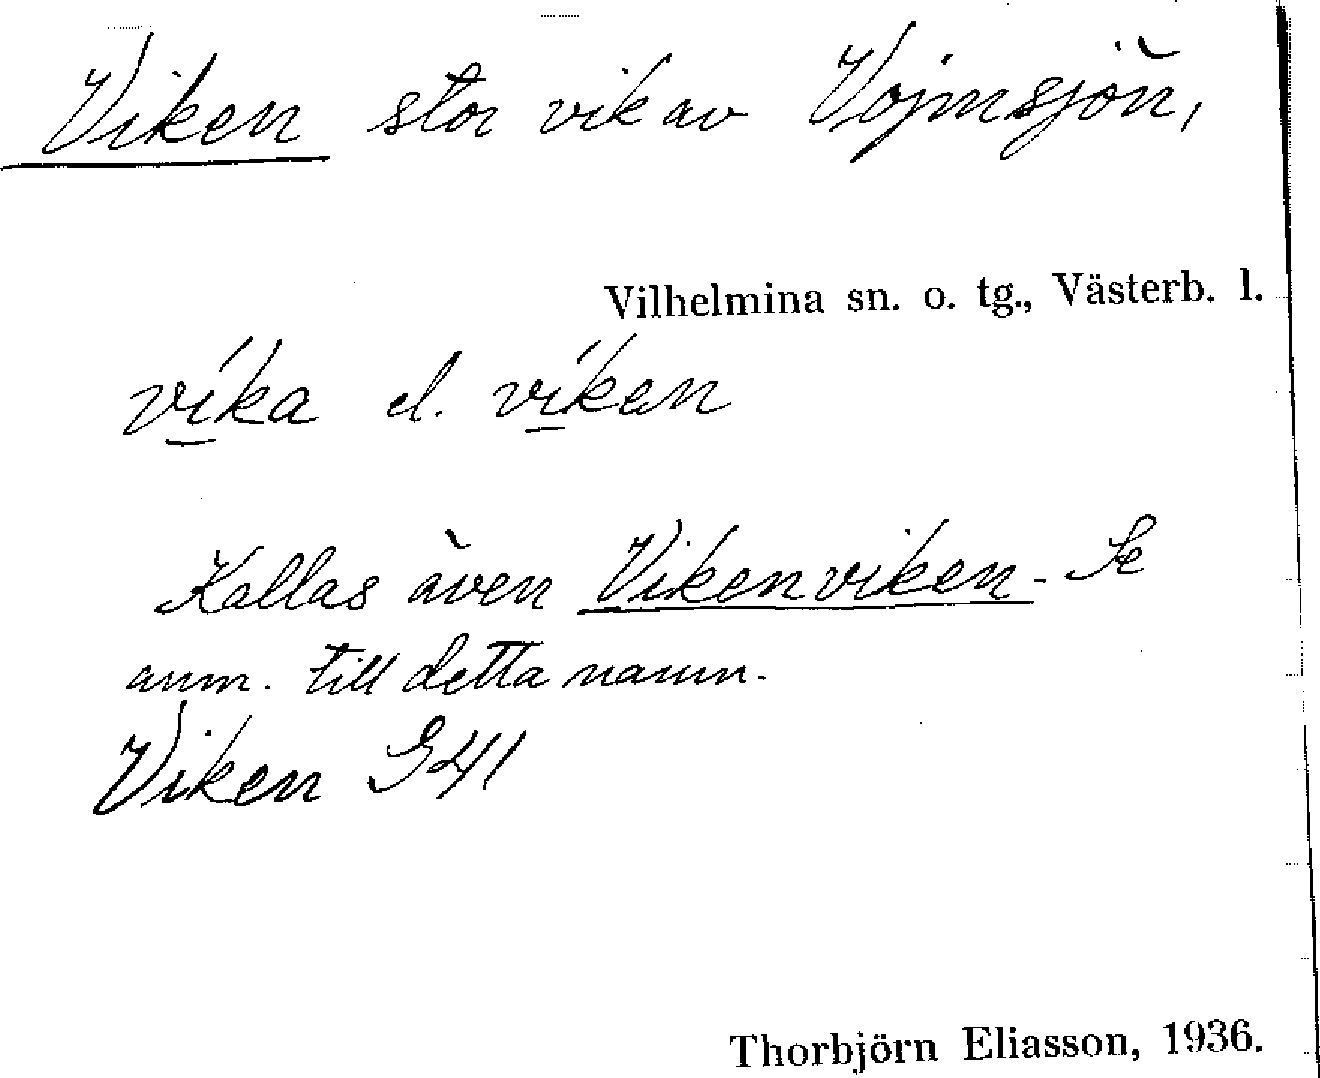 Viken stor vik av Vojmsjön,
Vilhelmina sn. o. tg., Västerb. l.
víka el. víken
Kallas även Vikenviken. Se
anm. till detta namn.
Viken G41
Thorbjörn Eliasson, 1936.